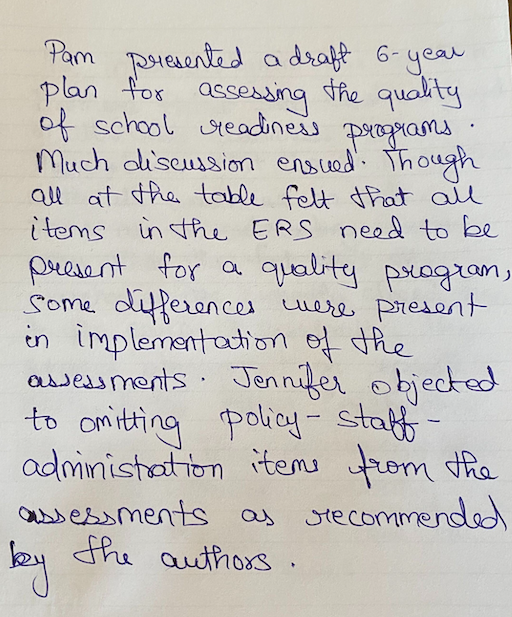 Pam presented a draft 6-year
plan for assessing the quality
of school readiness programs.
Much discussion ensued. Though
all at the table felt that all
items in the ERS need to be
present for a quality program,
some differences were present
in implementation of the
assessments. Jennifer objected
to omitting policy-staff-
administration items from the
assessments as recommended
by the authors.